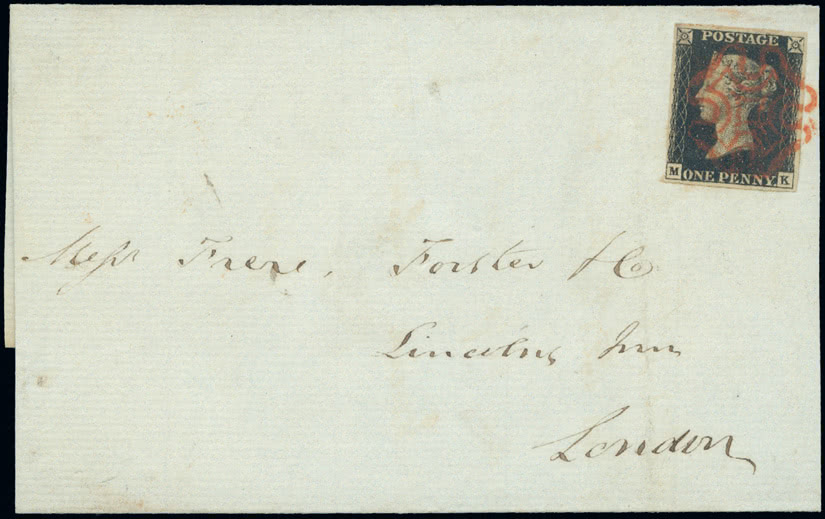 POSTAGE
M ONE PENNY K
Messrs Frere, Forster & Co
Lincolns Inn
London